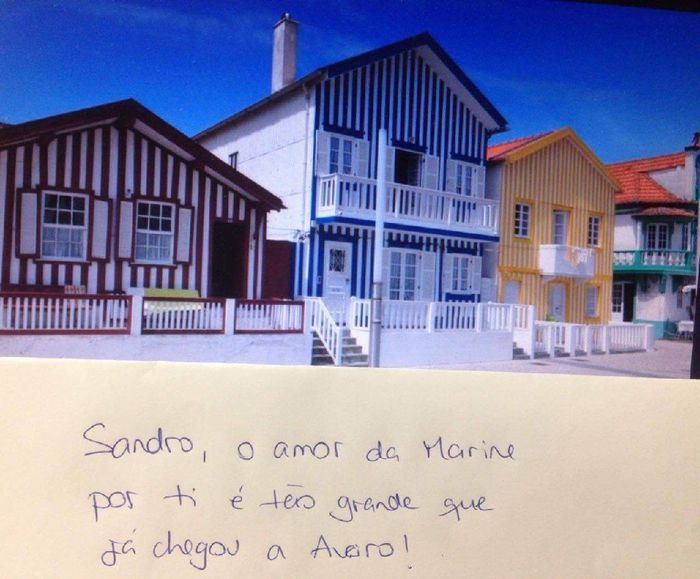 Sandro, o amor da Marine
por ti é tão grande que
já chegou a Aveiro!